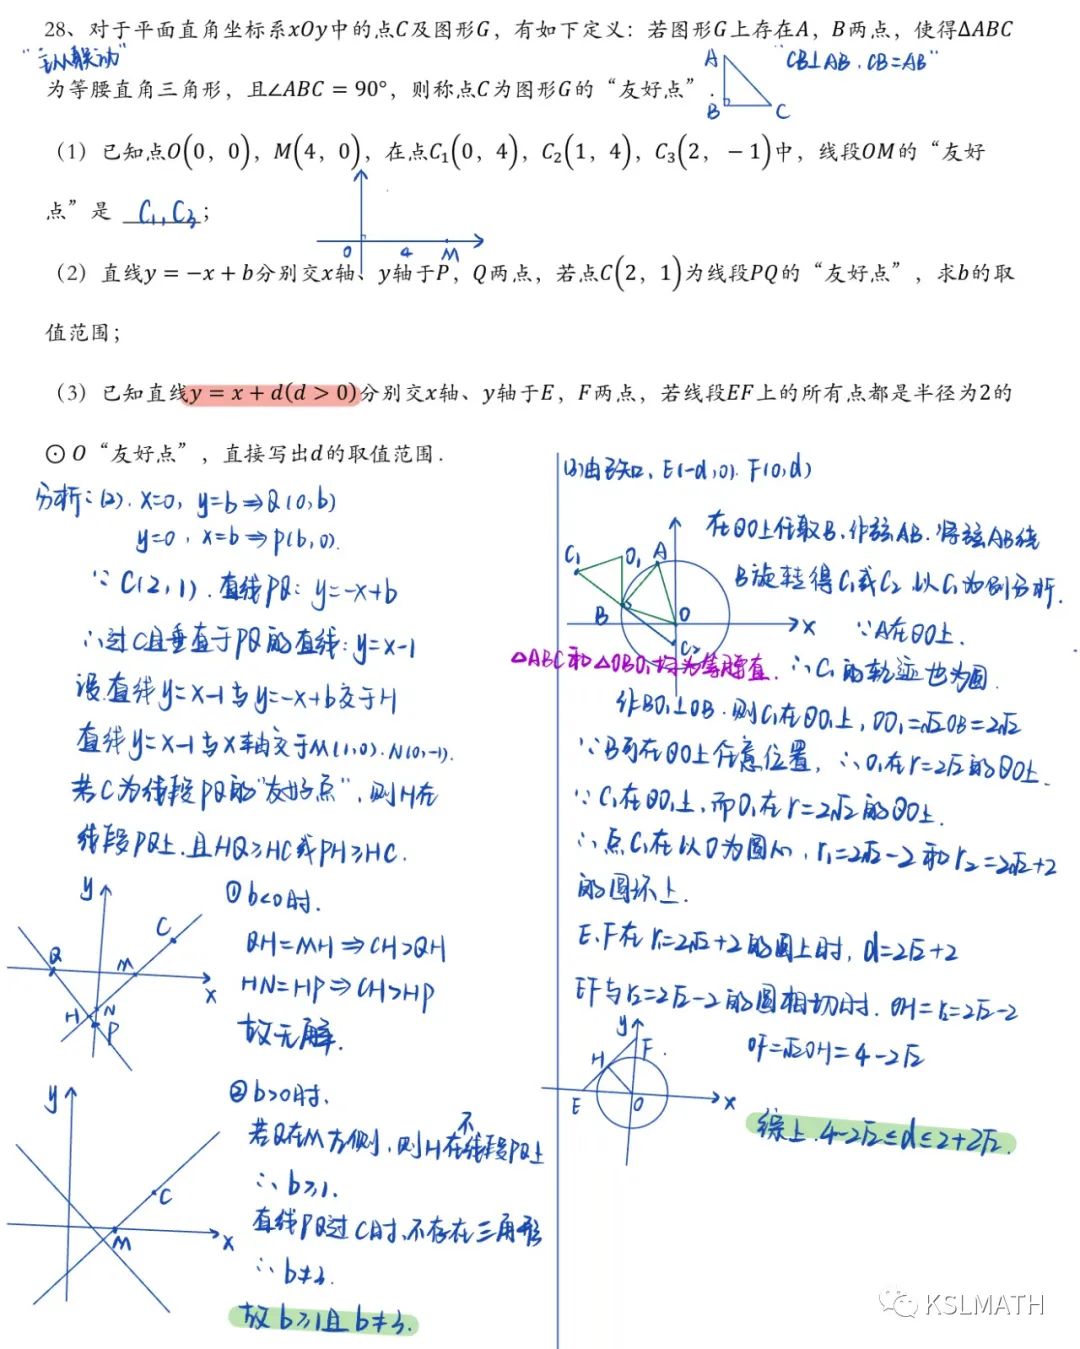 28、对于平面直角坐标系xOy中的点C及图形G，有如下定义：若图形G上存在A，B两点，使得ΔABC
"主从联动"
A
B
C
"CB⊥AB．CB=AB"
为等腰直角三角形，且∠ABC = 90°，则称点C为图形G的“友好点”．
（1）已知点O(0，0)，M(4，0)，在点C₁(0，4)，C₂(1，4)，C₃(2，－1)中，线段OM的“友好
点”是 C₁，C₃；
0 4 M
（2）直线y = −x + b分别交x轴、y轴于P，Q两点，若点C(2，1)为线段PQ的“友好点”，求b的取
值范围；
（3）已知直线y = x + d(d > 0)分别交x轴、y轴于E，F两点，若线段EF上的所有点都是半径为2的
⊙O“友好点”，直接写出d的取值范围．
分析：(2). x=0, y=b ⇒ Q(0,b)
y=0, x=b ⇒ P(b,0).
∵ C(2,1). 直线PQ: y=-x+b
∴过C且垂直于PQ的直线: y=x-1
设直线y=x-1与y=-x+b交于H
直线y=x-1与x轴交于M(1,0). N(0,-1).
若C为线段PQ的"友好点", 则H在
线段PQ上. 且HQ≥HC或PH≥HC.
y
Q
M
C
x
H
N
P
①b<0时.
QH=MH ⇒ CH>QH
HN=HP ⇒ CH>HP
故无解.
y
C
M
x
②b>0时.
若Q在M左侧, 则H不在线段PQ上
∴ b≥1.
直线PQ过C时, 不存在三角形
∴ b≠3.
故b≥1且b≠3.
(3)由已知, E(-d,0). F(0,d)
在⊙O上任取B. 作弦AB. 将弦AB绕
B旋转得C₁或C₂ 以C₁为例分析.
C₁
O₁
A
B
O
C₂
x
∵A在⊙O上.
△ABC和△OBO₁均为等腰直.
∴C₁的轨迹也为圆.
作BO₁⊥OB. 则C₁在⊙O₁上, OO₁=√2OB=2√2
∵B可在⊙O上任意位置, ∴O₁在r=2√2的⊙O上.
∵C₁在⊙O₁上, 而O₁在r=2√2的⊙O上.
∴点C₁在以O为圆心, r₁=2√2-2和r₂=2√2+2
的圆环上.
E、F在r=2√2+2的圆上时, d=2√2+2
EF与r₂=2√2-2的圆相切时. OH=r₂=2√2-2
OF=√2OH=4-2√2
y
F
H
E
O
x
综上. 4-2√2≤d≤2+2√2.
KSLMATH